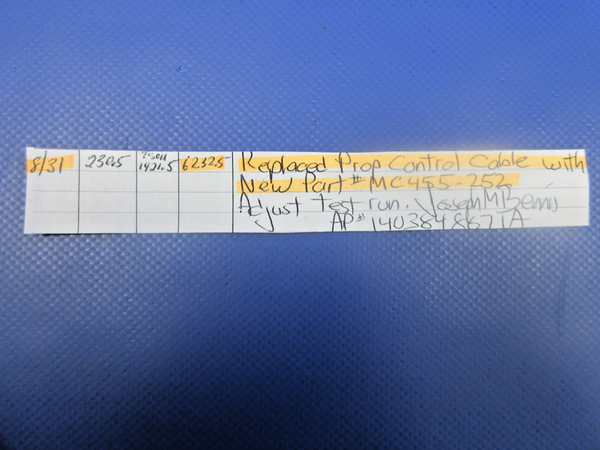 8/31 2305 1421.5 6232.5 Replaced Prop Control Cable with
New Part # MC455-252
Adjust test run. Joseph M Bemis
AP# 140384862IA